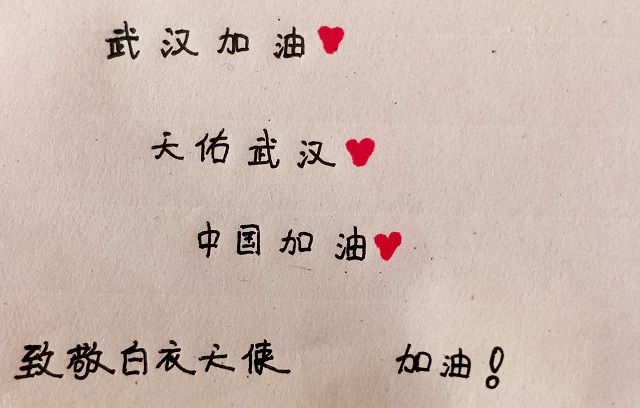 武汉加油
天佑武汉
中国加油
致敬白衣天使 加油!